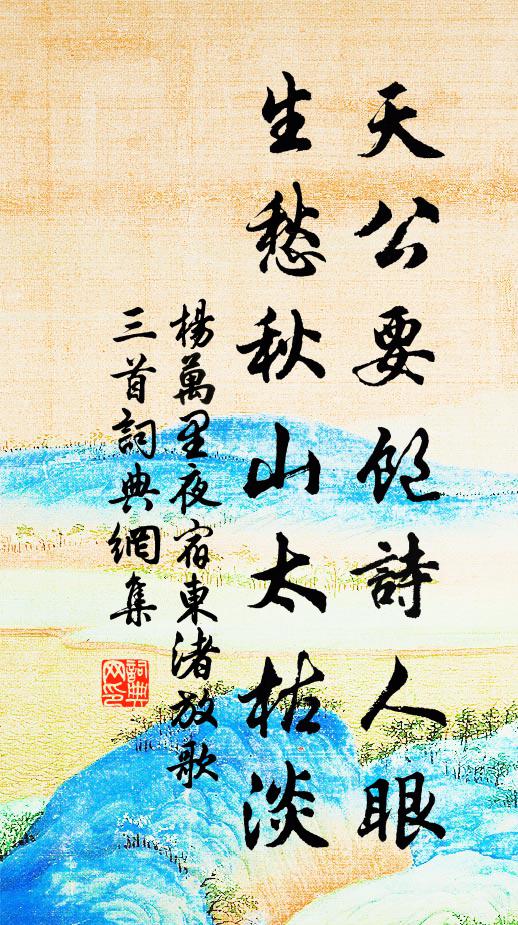 天公要飽詩人眼
生愁秋山太枯淡
楊萬里夜宿東渚放歌
三首詞典網集
詞典
网印